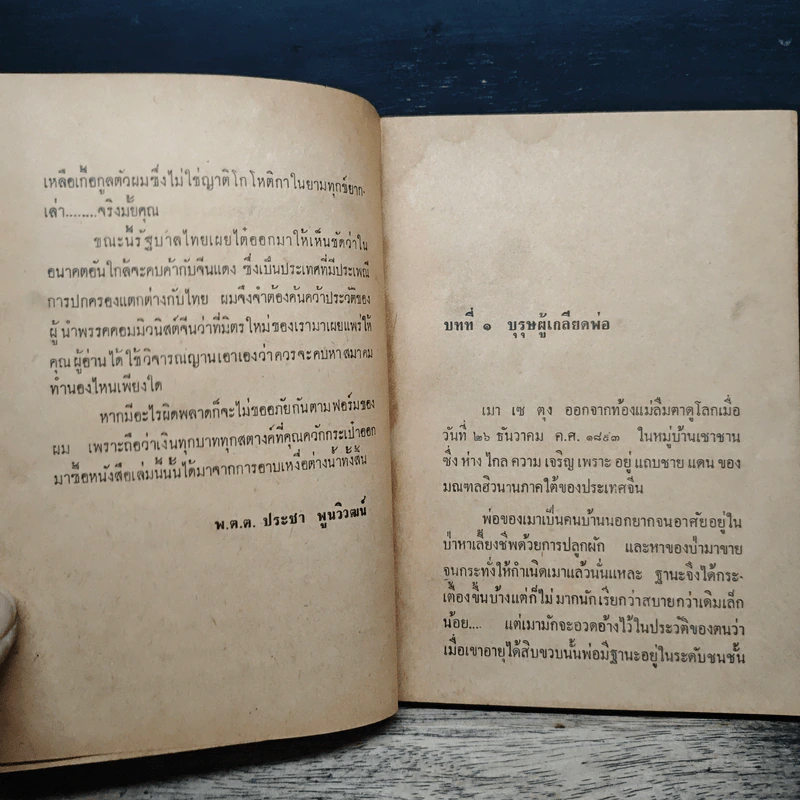 เหลือเกื้อกูลตัวผมซึ่งไม่ใช่ญาติโกโหติกาในยามทุกข์ยาก-
เล่า........จริงมั้ยคุณ
ขณะนี้รัฐบาลไทยเผยไต๋ออกมาให้เห็นชัดว่าใน
อนาคตอันใกล้จะคบค้ากับจีนแดง ซึ่งเป็นประเทศที่มีประเพณี
การปกครองแตกต่างกับไทย ผมจึงจำต้องค้นคว้าประวัติของ
ผู้นำพรรคคอมมิวนิสต์จีนว่าที่มิตรใหม่ของเรามาเผยแพร่ให้
คุณผู้อ่านได้ใช้วิจารณญานเอาเองว่าควรจะคบหาสมาคม
ทำนองไหนเพียงใด
หากมีอะไรผิดพลาดก็จะไม่ขออภัยกันตามฟอร์มของ
ผม เพราะถือว่าเงินทุกบาททุกสตางค์ที่คุณควักกระเป๋าออก
มาซื้อหนังสือเล่มนี้นั้นได้มาจากการอาบเหงื่อต่างน้ำทั้งสิ้น
พ.ต.ต. ประชา พูนวิวฒน์
บทที่ ๑ บุรุษผู้เกลียดพ่อ
เมา เซ ตุง ออกจากท้องแม่ลืมตาดูโลกเมื่อ
วันที่ ๒๖ ธันวาคม ค.ศ. ๑๘๙๓ ในหมู่บ้านเชาชาน
ซึ่ง ห่าง ไกล ความ เจริญ เพราะ อยู่ แถบชาย แดน ของ
มณฑลฮิวนานภาคใต้ของประเทศจีน
พ่อของเมาเป็นคนบ้านนอกยากจนอาศัยอยู่ใน
ป่าหาเลี้ยงชีพด้วยการปลูกผัก และหาของป่ามาขาย
จนกระทั่งให้กำเนิดเมาแล้วนั่นแหละ ฐานะจึงได้กระ-
เตื้องขึ้นบ้างแต่ก็ไม่มากนักเรียกว่าสบายกว่าเดิมเล็ก
น้อย.... แต่เมามักจะอวดอ้างไว้ในประวัติของตนว่า
เมื่อเขาอายุได้สิบขวบนั้นพ่อมีฐานะอยู่ในระดับชนชั้น